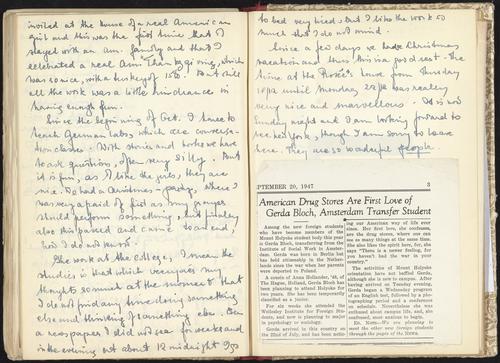 invited at the house of a real American
girl and this was the first time that I
stayed with an Am. family and that I
celebrated a real Am. Thanksgiving, which
was so nice, with a turkey of 15 lb. But still
all the work was a little hindrance in
having enough fun.
Since the beginning of Oct. I have to
teach German Labs, which are conversa-
tion classes. With stories and books we have
to ask questions, often very silly. But
it is fun, as I like the girls, they are
nice. We had a Christmas-party, where I
was very afraid of first as my
should perform something, but finally
also this passed and came to an end,
how I do not know.
The work at the college, I mean the
studies is that which occupies my
thoughts so much at the moment that
I do not find any time doing something
else and thinking of something else. Even
a newspaper I did not see for weeks and
in the evening at about 12 midnight I go
to bed very tired. But I like the work so
much that I do not mind.
Since a few days we have Christmas
vacation and thus this is a good rest. The
time at the house from Thursday
18th until Monday 22nd was really
very nice and marvellous. It is now
Sunday night and I am looking forward to
see New York, though I am sorry to leave
here. They are so wonderful people.
SEPTEMBER 20, 1947 3
American Drug Stores Are First Love of
Gerda Bloch, Amsterdam Transfer Student
Among the new foreign students
who have become members of the
Mount Holyoke student body this year
is Gerda Bloch, transferring from the
Institute of Social Work in Amster-
dam. Gerda was born in Berlin but
has held citizenship in the Nether-
lands since the war when her parents
were deported to Poland.
A cousin of Anna Hollander, '48, of
The Hague, Holland, Gerda Bloch has
been planning to attend Holyoke for
two years. She has been temporarily
classified as a junior.
For six weeks she attended the
Wellesley Institute for Foreign Stu-
dents, and now is planning to major
in psychology or sociology.
Gerda arrived in this country on
the 22nd of July, and has been notic-
ing our American way of life ever
since. Her first love, she confesses,
are the drug stores, where one can
do so many things at the same time.
She also likes the spirit here, for, she
says "There is a newer feeling, for
you haven't had the war in your
country."
The activities of Mount Holyoke
orientation have not baffled Gerda,
although she is new to campus. After
having arrived on Tuesday evening,
Gerda began a Wednesday program
of an English test, followed by a pho-
tographing period and a conference
on schedule. Nevertheless she was
enthused about campus life, and, she
confessed, most anxious to begin.
Ed. Note—We are planning to
meet the other new foreign students
through the pages of the News.